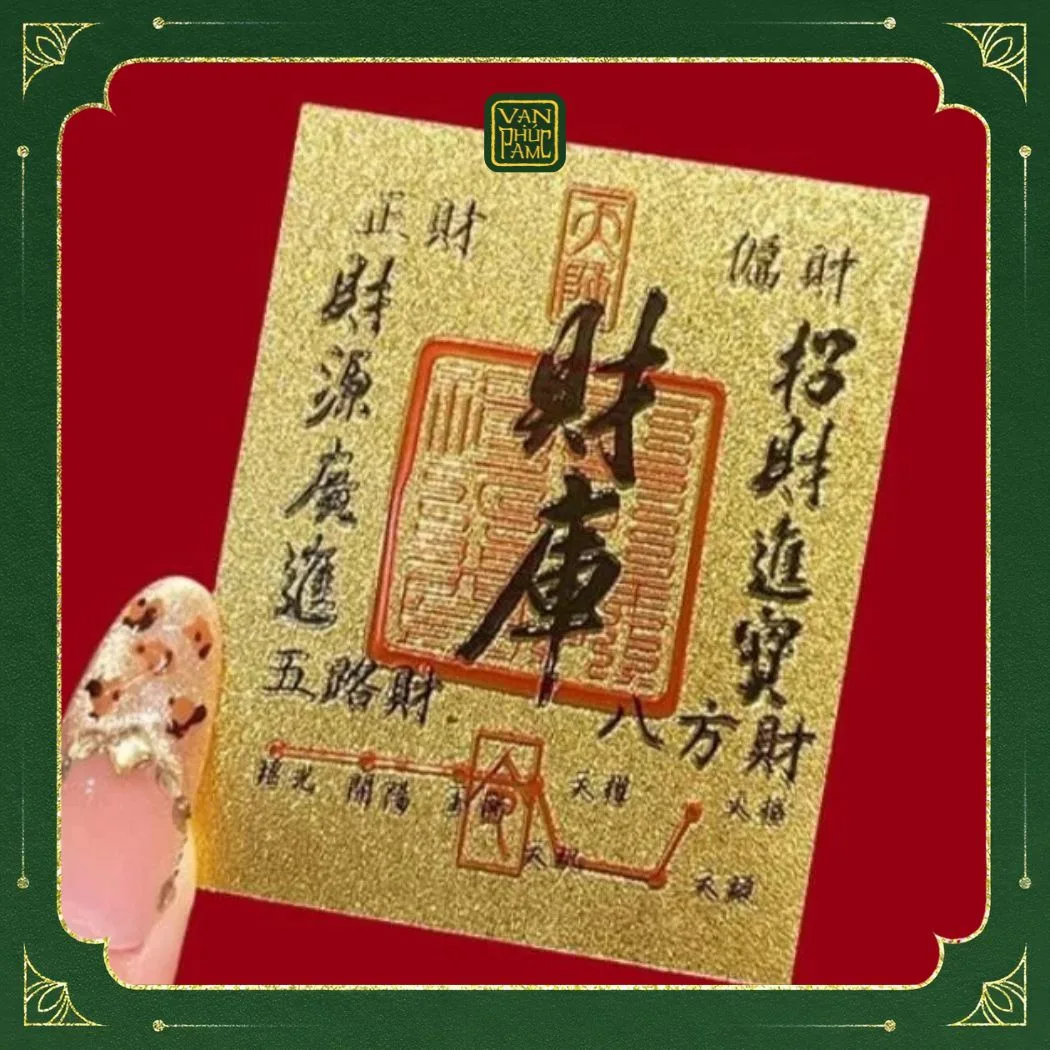 VẠN
PHÚC
AMC
天師
正財
偏財
財庫
財源廣進
招財進寶
五路財
八方財
瑤光
開陽
玉衡
天權
天璣
天樞
命